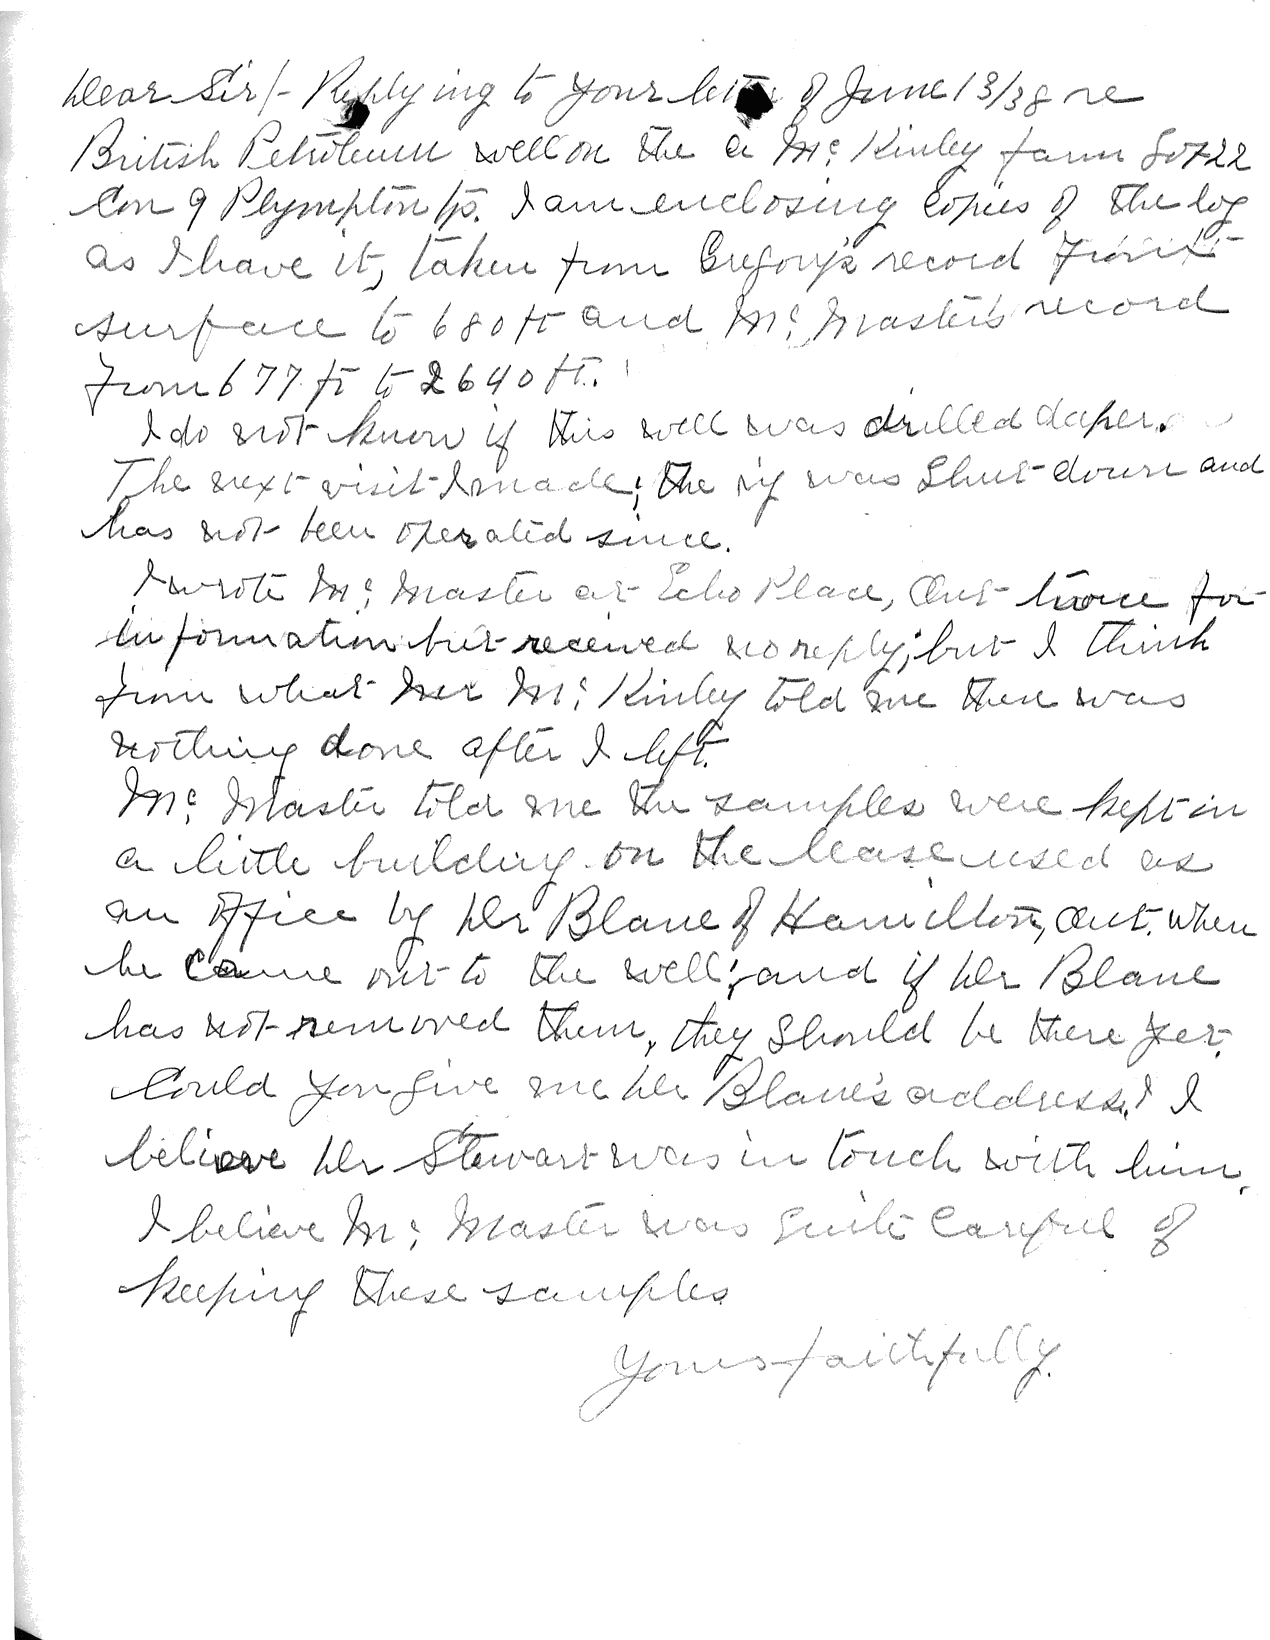 Dear Sir/- Replying to your letter of June 13/38 re
British Petroleum well on the A McKinley farm Lot 22
Con 9 Plympton tp. I am enclosing copies of the log
as I have it, taken from Gregory's record from
surface to 680 ft and McMaster's record
from 677 ft to 2640 ft.
I do not know if this well was drilled deeper.
The next visit I made; the rig was shut down and
has not been operated since.
I wrote McMaster at Echo Place, Ont twice for
information but received no reply; but I think
from what McKinley told me there was
nothing done after I left.
McMaster told me the samples were kept in
a little building on the lease used as
an office by Dr Blane of Hamilton, Ont. when
he came out to the well; and if Dr Blane
has not removed them, they should be there yet.
Could you give me Dr Blane's address. I
believe Dr Stewart was in touch with him.
I believe McMaster was quite careful of
keeping these samples
Yours faithfully.